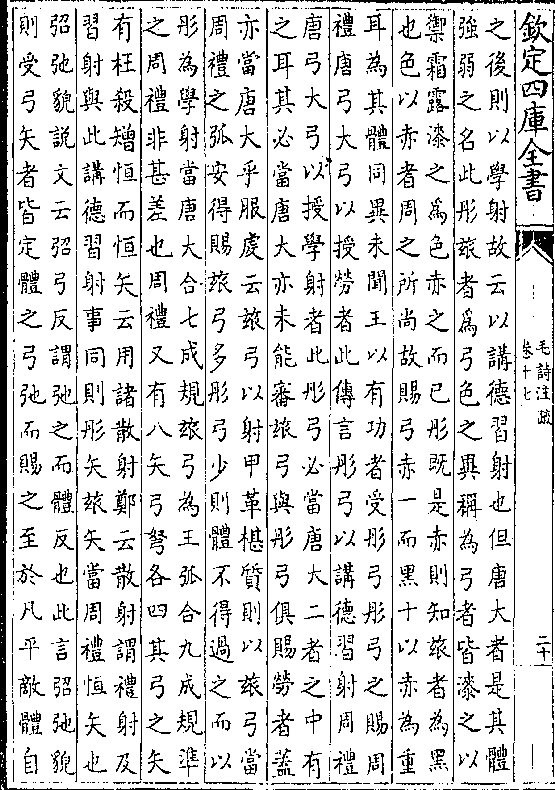 欽定四庫全書
毛詩注疏
卷十七
二十
之後則以學射故云以講德習射也但唐大者是其體
強弱之名此彤玈者為弓色之異稱為弓者皆漆之以
禦霜露漆之為色赤之而已彤既是赤則知玈者為黑
也色以赤者周之所尚故賜弓赤一而黑十以赤為重
耳為其體同異未聞王以有功者受彤弓彤弓之賜周
禮唐弓大弓以授勞者此傳言彤弓以講德習射周禮
唐弓大弓以授學射者此彤弓必當唐大二者之中有
之耳其必當唐大亦未能審玈弓與彤弓俱賜勞者蓋
亦當唐大乎服虔云玈弓以射甲革椹質則以玈弓當
周禮之弧安得賜玈弓多彤弓少則體不得過之而以
彤為學射當唐大合七成規玈弓為王弧合九成規準
之周禮非甚差也周禮又有八矢弓弩各四其弓之矢
有枉殺矰恒而恒矢云用諸散射鄭云散射謂禮射及
習射與此講德習射事同則彤矢玈矢當周禮恒矢也
弨弛貌説文云弨弓反謂弛之而體反也此言弨弛貌
則受弓矢者皆定體之弓弛而賜之至於凡平敵體自